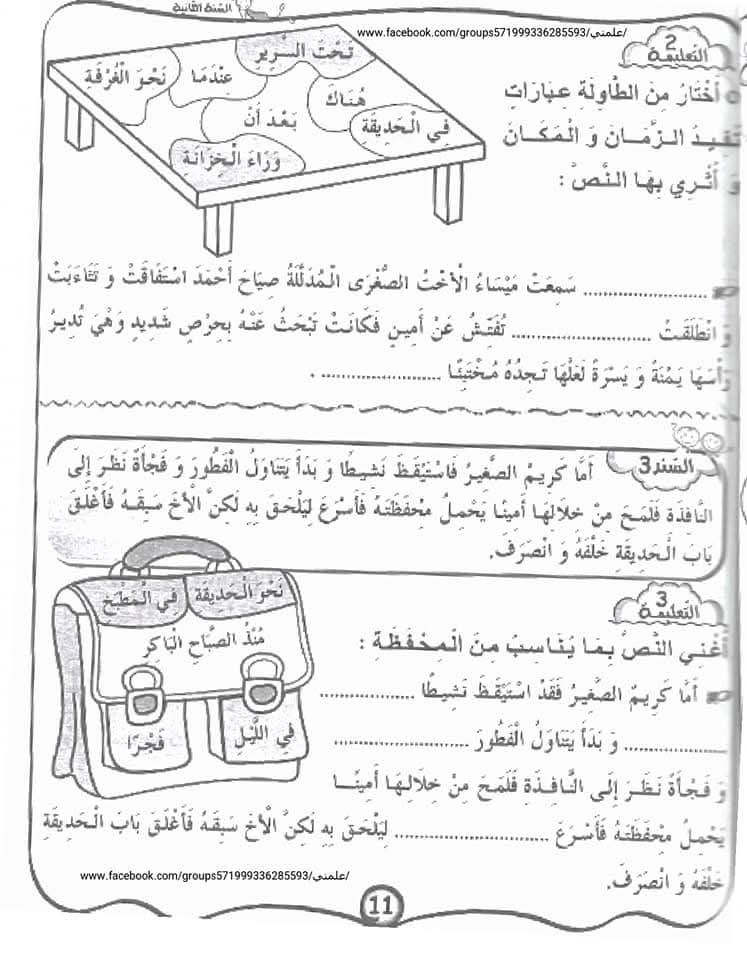 السنة الثانية
www.facebook.com/groups571999336285593/علمني/
التعليمة 2
أَخْتَارُ مِنَ الطَّاوِلَة عِبَارَاتٍ
تُفِيدُ الزَّمَانَ وَ الْمَكَانَ
وَ أُثْرِي بِهَا النَّصَّ :
تَحْتَ السَّرِيرِ
عِنْدَمَا
نَحْوَ الْغُرْفَةِ
هُنَاكَ
بَعْدَ أَنْ
فِي الْحَدِيقَةِ
وَرَاءَ الْخِزَانَةِ
........................ سَمِعَتْ مَيْسَاءُ الْأُخْتُ الصُّغْرَى الْمُدَلَّلَةُ صِيَاحَ أَحْمَدَ اسْتَفَاقَتْ وَ تَثَاءَبَتْ
وَ انْطَلَقَتْ ........................... تُفَتِّشُ عَنْ أَمِينٍ فَكَانَتْ تَبْحَثُ عَنْهُ بِحِرْصٍ شَدِيدٍ وَ هْيَ تُدِيرُ
رَأْسَهَا يَمْنَةً وَ يَسْرَةً لَعَلَّهَا تَجِدُهُ مُخْتَبِئًا ........................ .
السند 3 أَمَّا كَرِيمُ الصَّغِيرُ فَاسْتَيْقَظَ نَشِيطًا وَ بَدَأَ يَتَنَاوَلُ الْفَطُورَ وَ فَجْأَةً نَظَرَ إِلَى
النَّافِذَةِ فَلَمَحَ مِنْ خِلَالِهَا أَمِينًا يَحْمِلُ مِحْفَظَتَهُ فَأَسْرَعَ لِيَلْحَقَ بِهِ لَكِنَّ الْأَخَ سَبَقَهُ فَأَغْلَقَ
بَابَ الْحَدِيقَةِ خَلْفَهُ وَ انْصَرَفَ.
التعليمة 3
أُغْنِي النَّصَّ بِمَا يُنَاسِبُ مِنَ الْمِحْفَظَةِ :
نَحْوَ الْحَدِيقَةِ
فِي الْمَطْبَخِ
مُنْذُ الصَّبَاحِ الْبَاكِرِ
فِي اللَّيْلِ
فَجْرًا
أَمَّا كَرِيمُ الصَّغِيرُ فَقَدْ اسْتَيْقَظَ نَشِيطًا ....................
...................... وَ بَدَأَ يَتَنَاوَلُ الْفَطُورَ ...........................
وَ فَجْأَةً نَظَرَ إِلَى النَّافِذَةِ فَلَمَحَ مِنْ خِلَالِهَا أَمِينًا
يَحْمِلُ مِحْفَظَتَهُ فَأَسْرَعَ ............................... لِيَلْحَقَ بِهِ لَكِنَّ الْأَخَ سَبَقَهُ فَأَغْلَقَ بَابَ الْحَدِيقَةِ
خَلْفَهُ وَ انْصَرَفَ.
www.facebook.com/groups571999336285593/علمني/
11